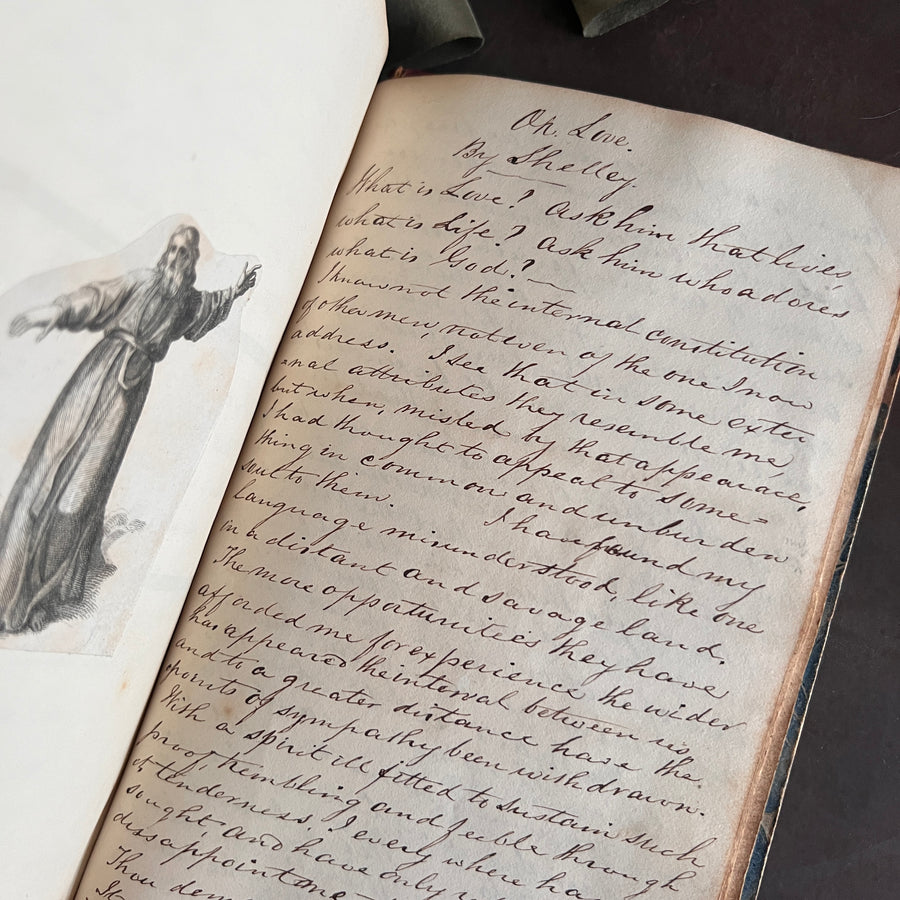 On. Love.
By Shelley.
What is Love? Ask him that lives,
what is Life? Ask him who adores
what is God?
I know not the internal constitution
of other men, not even of the one I now
address. I see that in some exter
nal attributes they resemble me
but when, misled by that appearance,
I had thought to appeal to some=
thing in common and unburden
soul to them. I have found my
language misunderstood, like one
in a distant and savage land.
The more opportunitees they have
afforded me for experience the wider
has appeared the interval between us,
and to a greater distance have the
points of sympathy been withdrawn.
With a spirit ill fitted to sustain such
proof, trembling and feeble through
its tenderness, I every where ha
sought, and have only
dissappointme
Thou dem